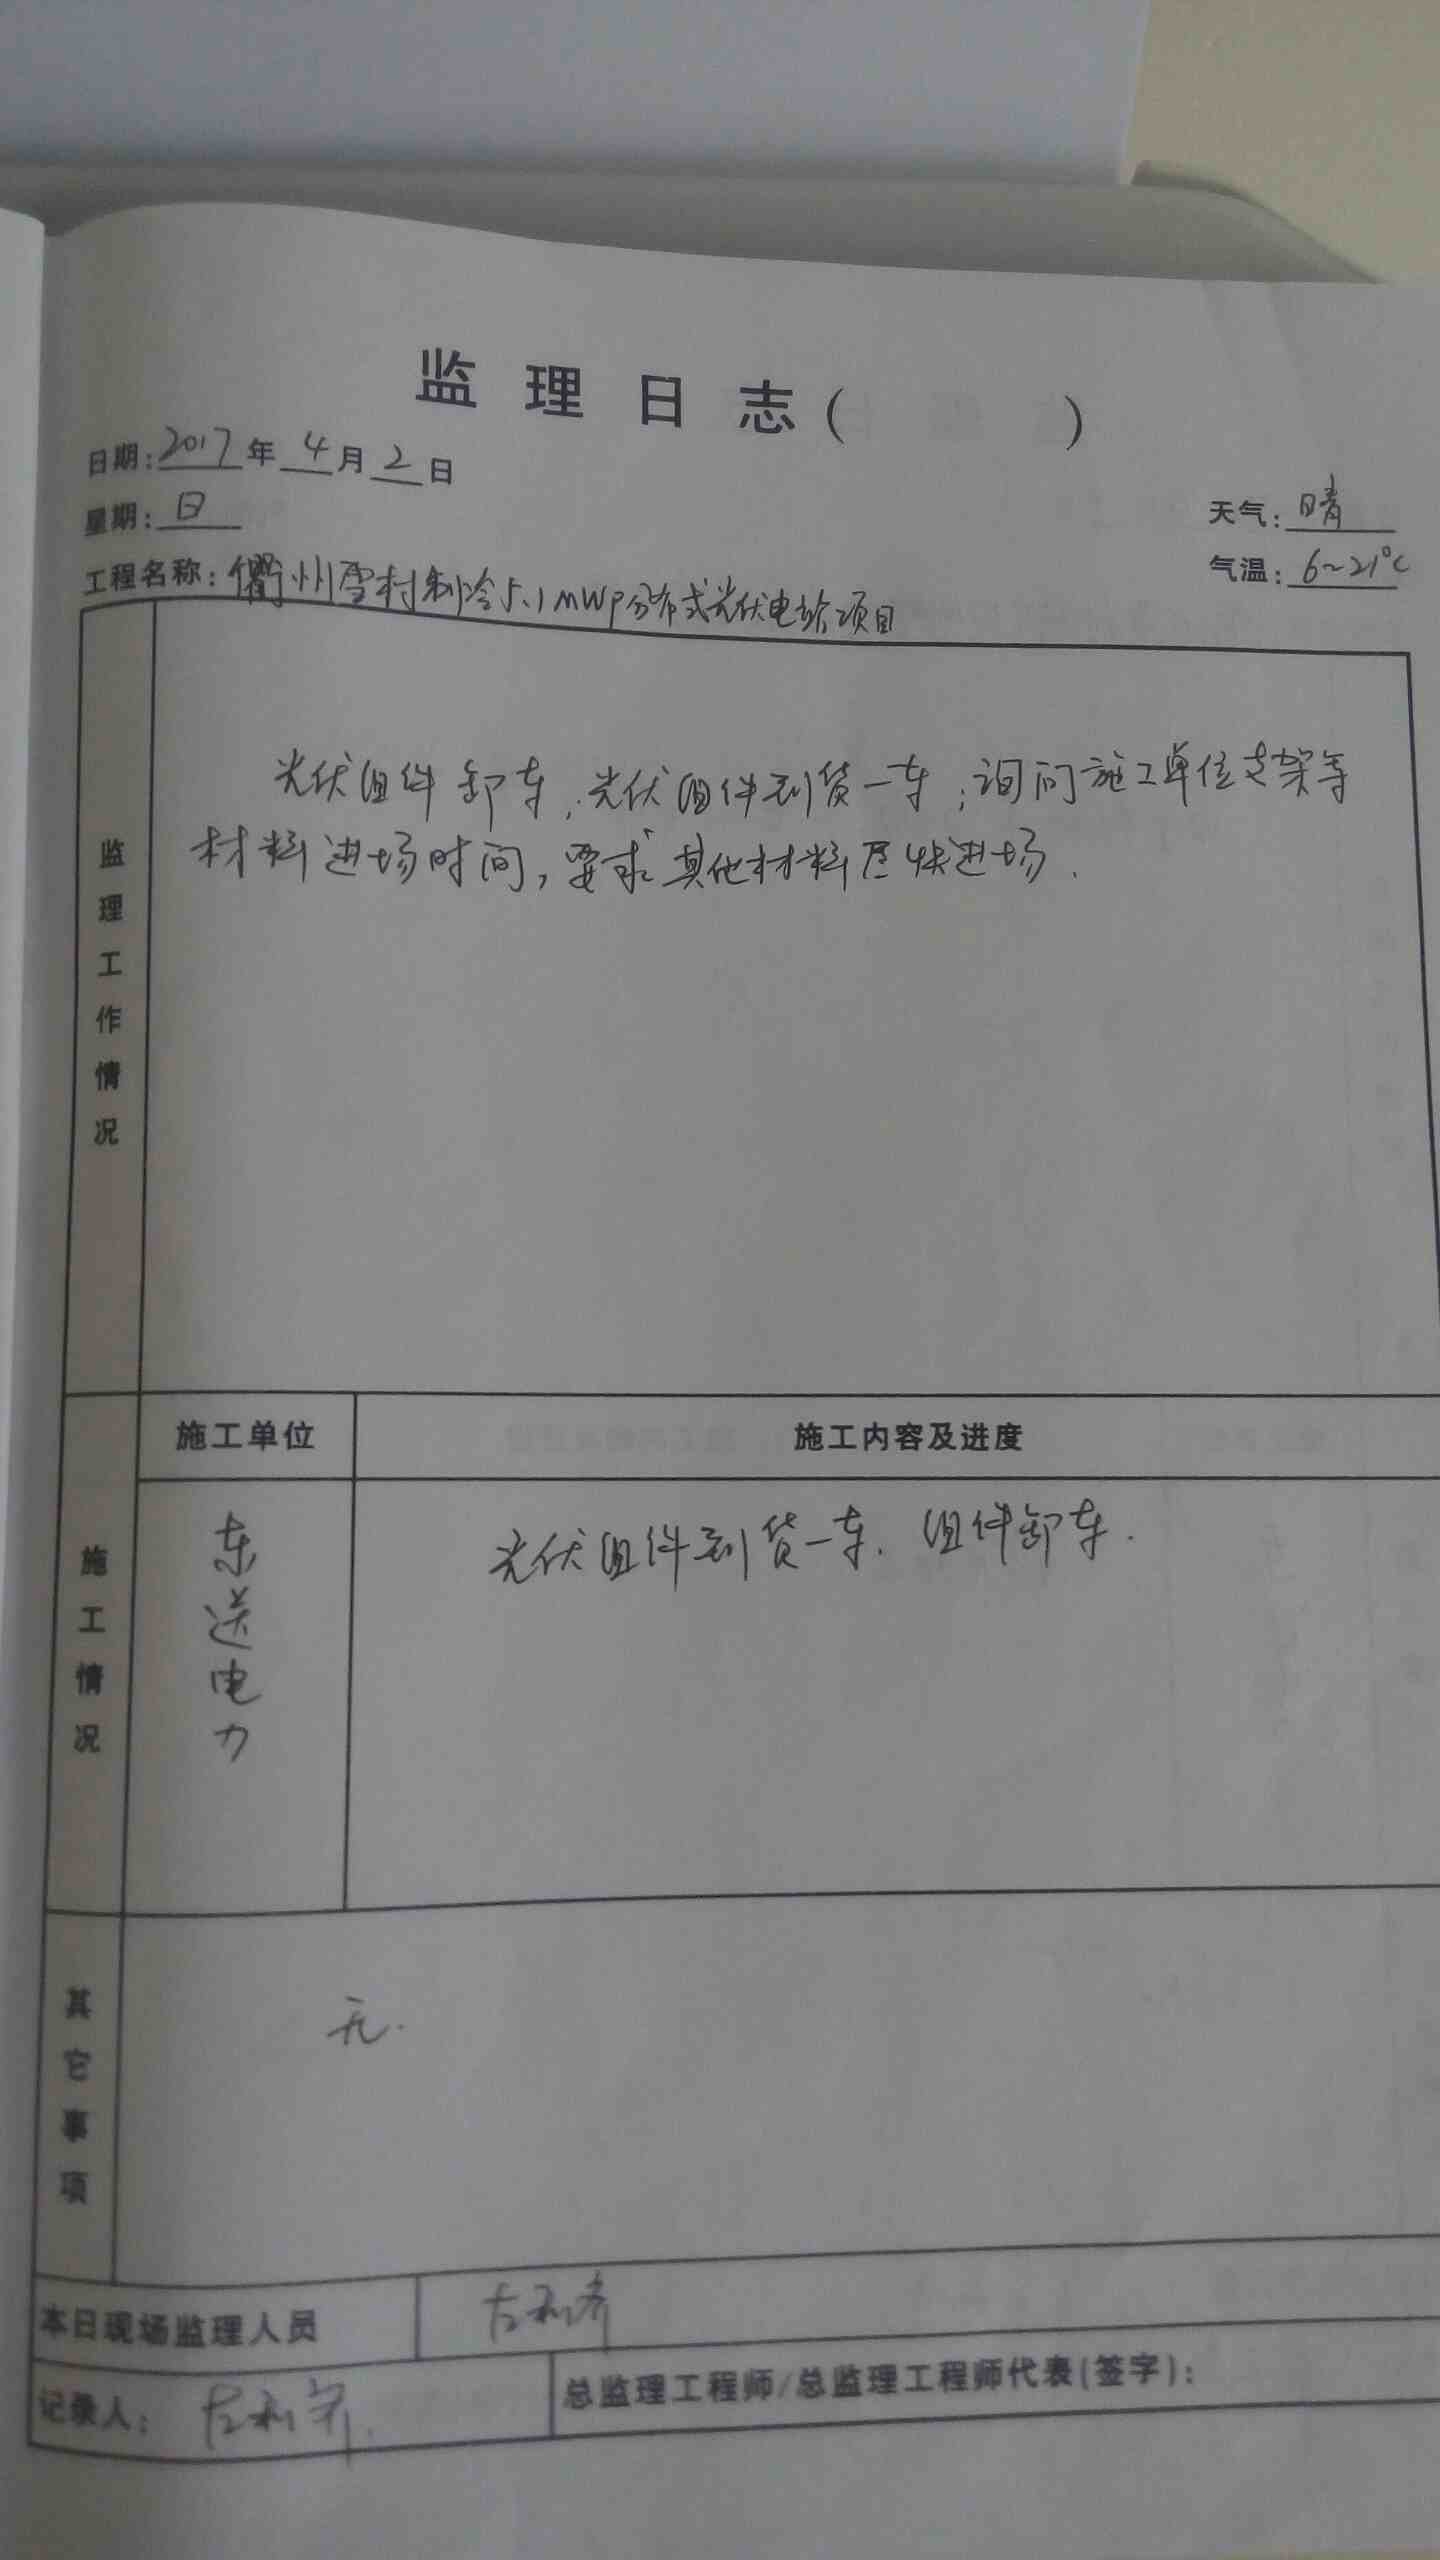 监理日志(            )
日期:2017年4月2日
星期:日
天气:晴
工程名称:衢州雪村制冷5.1MWP分布式光伏电站项目
气温:6~21℃
监理工作情况
光伏组件卸车,光伏组件到货一车;询问施工单位支架等
材料进场时间,要求其他材料尽快进场.
施工情况
施工单位
施工内容及进度
东送电力
光伏组件到货一车.组件卸车.
其它事项
无.
本日现场监理人员
记录人:
总监理工程师/总监理工程师代表(签字):